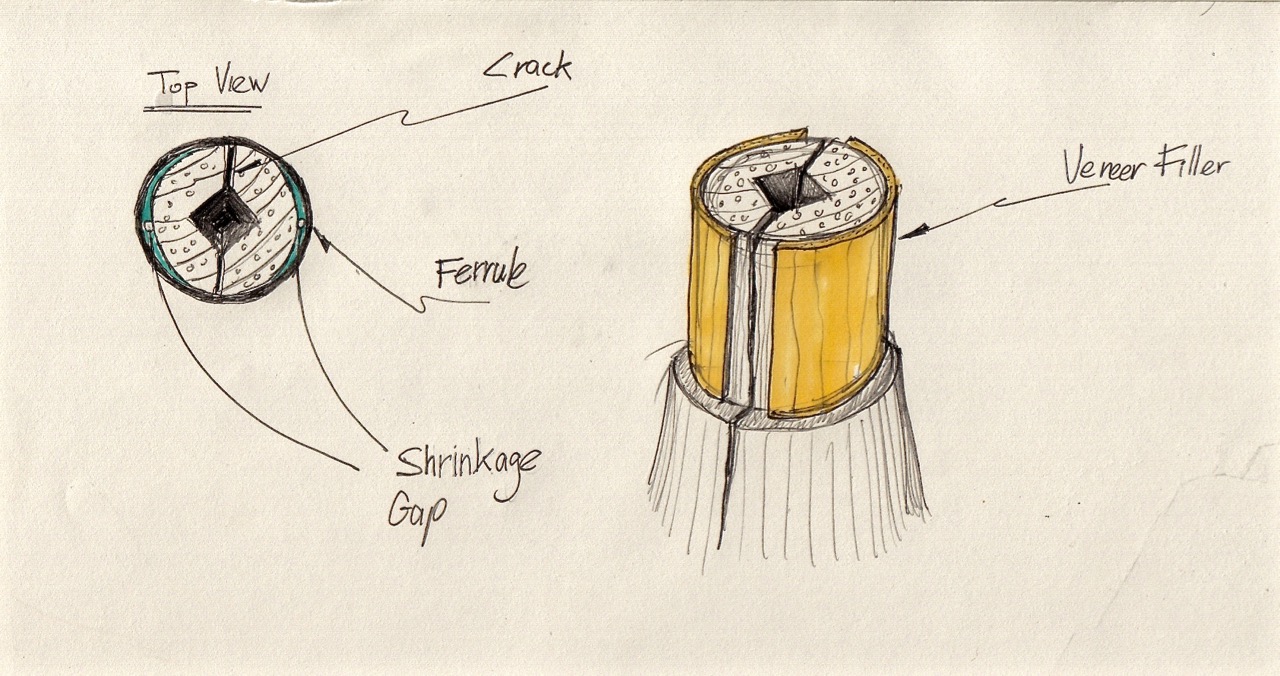 Top View
Crack
Veneer Filler
Ferrule
Shrinkage
Gap